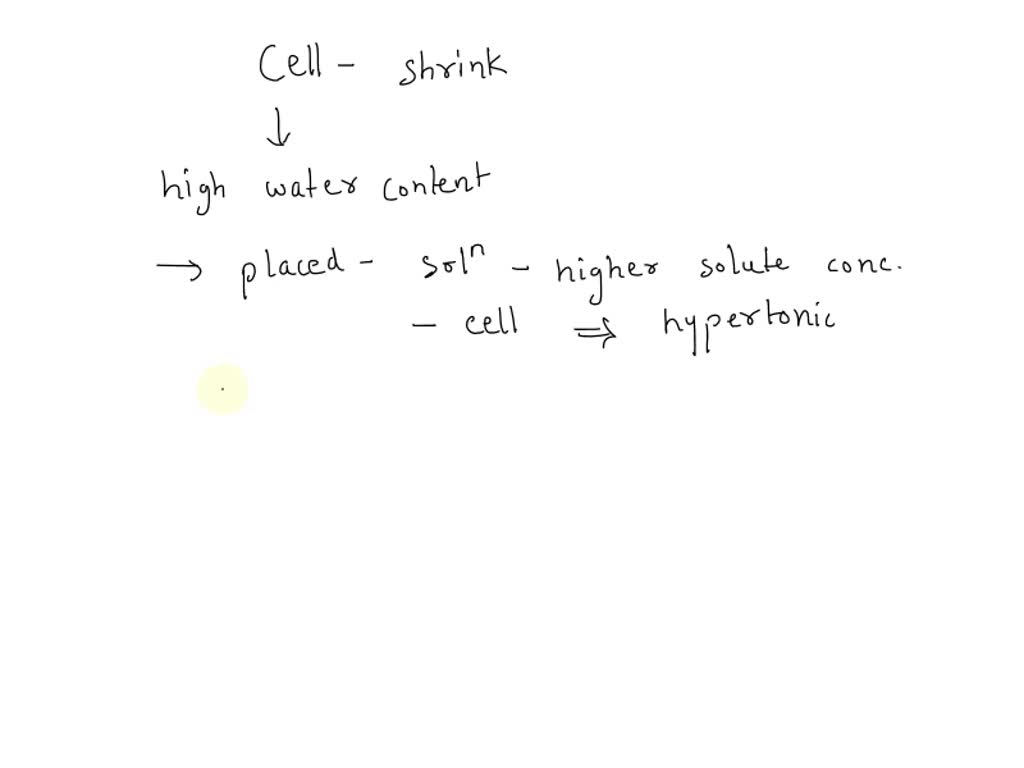 Cell - shrink
↓
high water content
→ placed - solⁿ - higher solute conc.
- cell ⇒ hypertonic